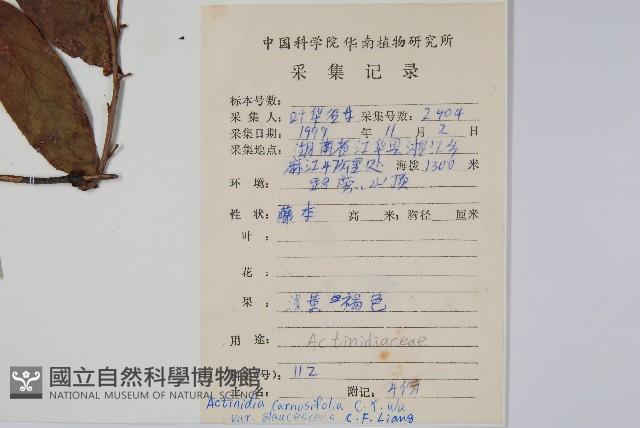 中国科学院华南植物研究所
采集记录
标本号数:
采集人: 叶华谷 采集号数: 2404
采集日期: 1999 年 11 月 2 日
采集地点: 湖南省江华县湘江乡
海拨 1300 米
环境: 山顶
性状: 藤本 高 米; 胸径 厘米
叶:
花:
果: 浅 褐色
用途: Actinidiaceae
112
附记:
國立自然科學博物館
NATIONAL MUSEUM OF NATURAL SCIENCE
Actinidia carnosifolia C. Y. Wu
var. glaucescens C. F. Liang